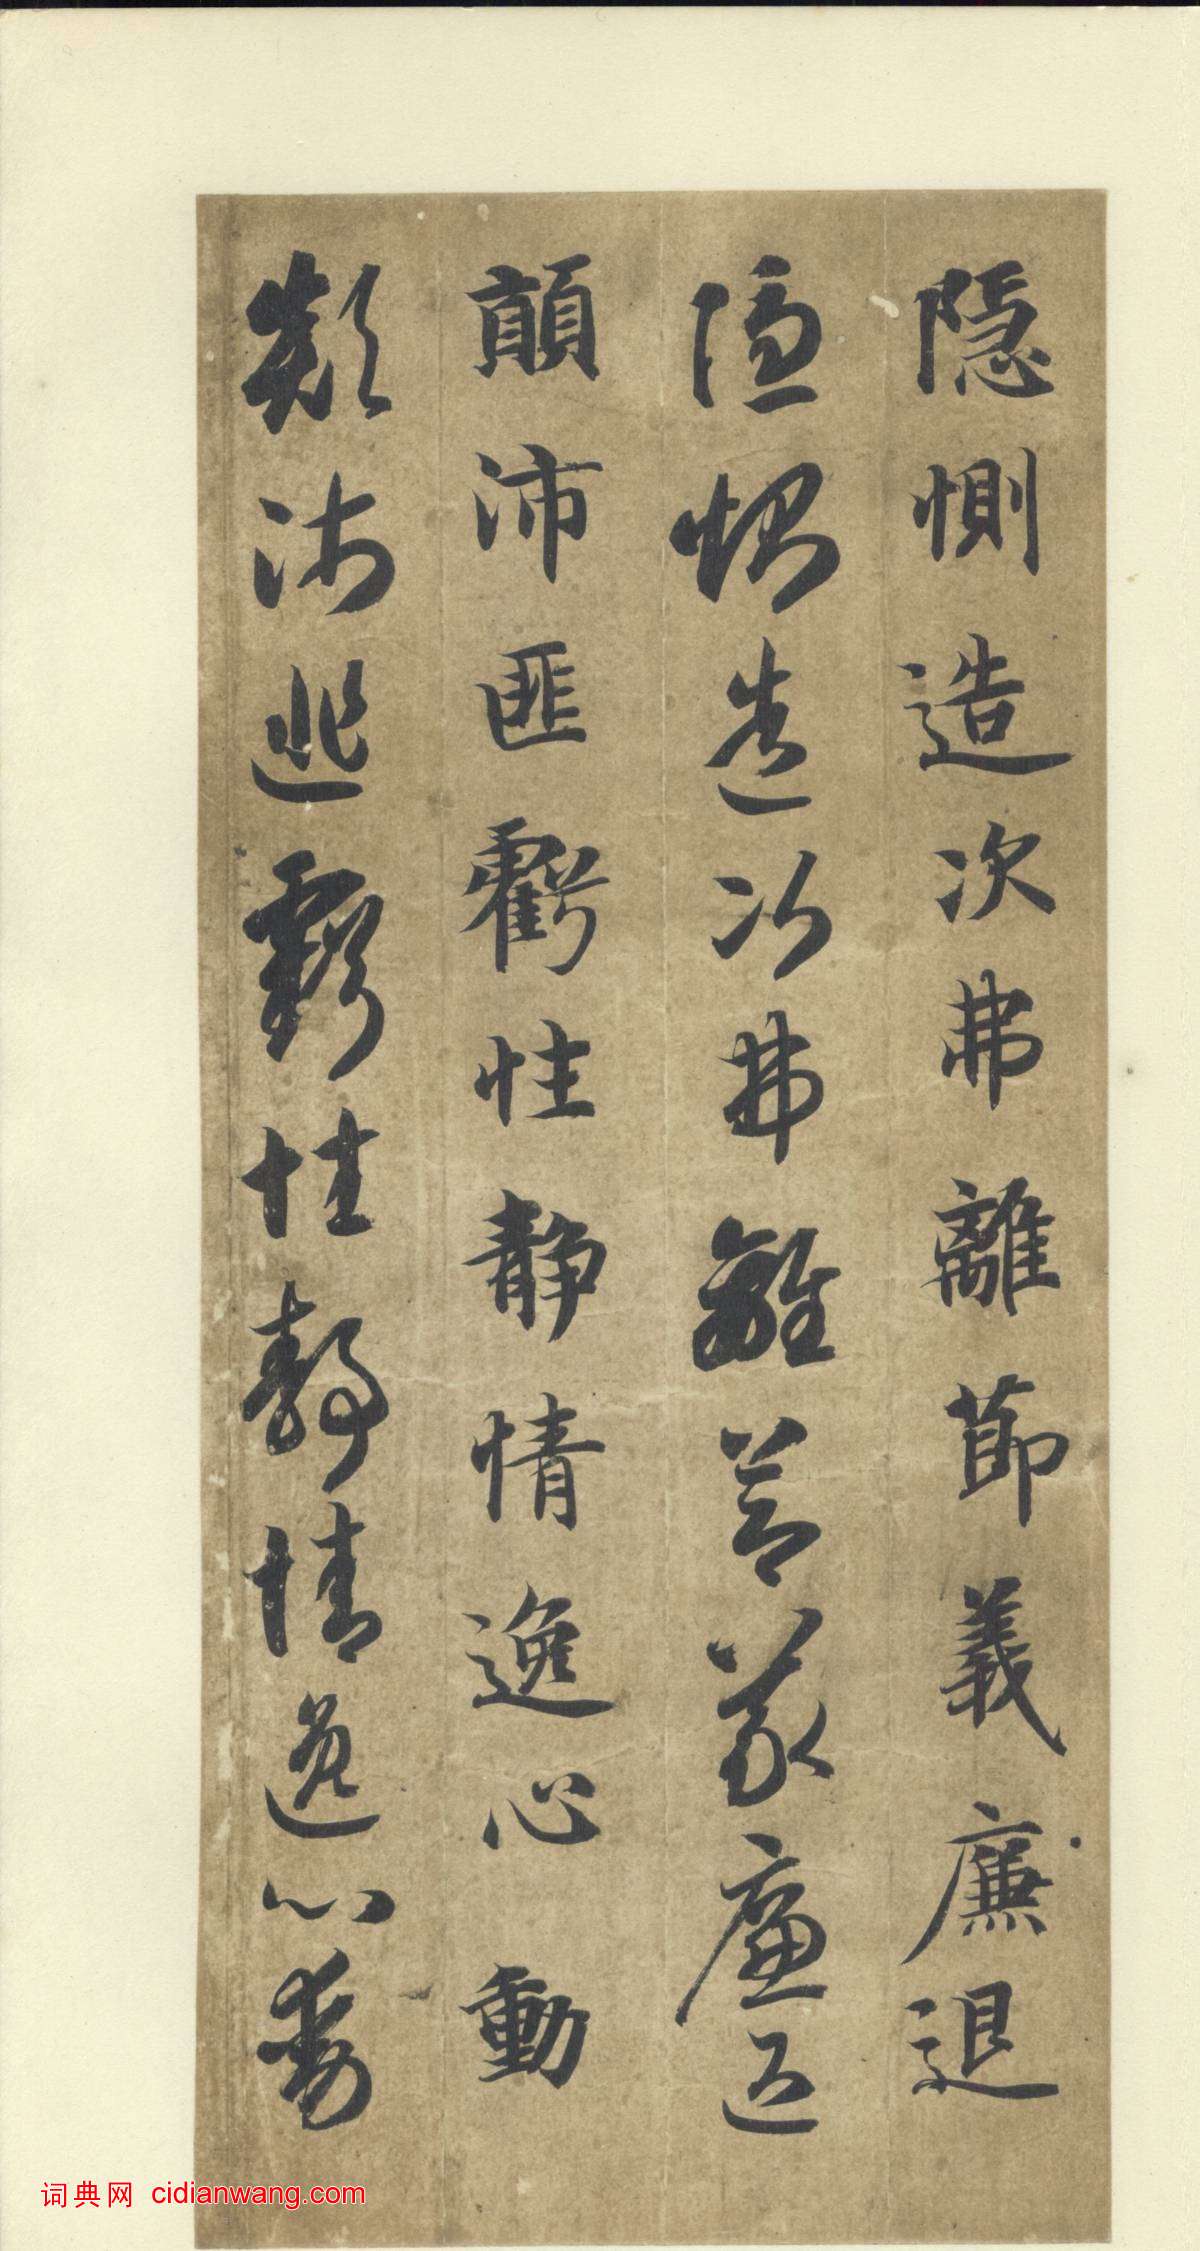 隐惻造次弗離節義廉退
隐惻造次弗離節義廉退
顛沛匪虧性静情逸心動
顛沛匪虧性静情逸心動
词典网 cidianwang.com